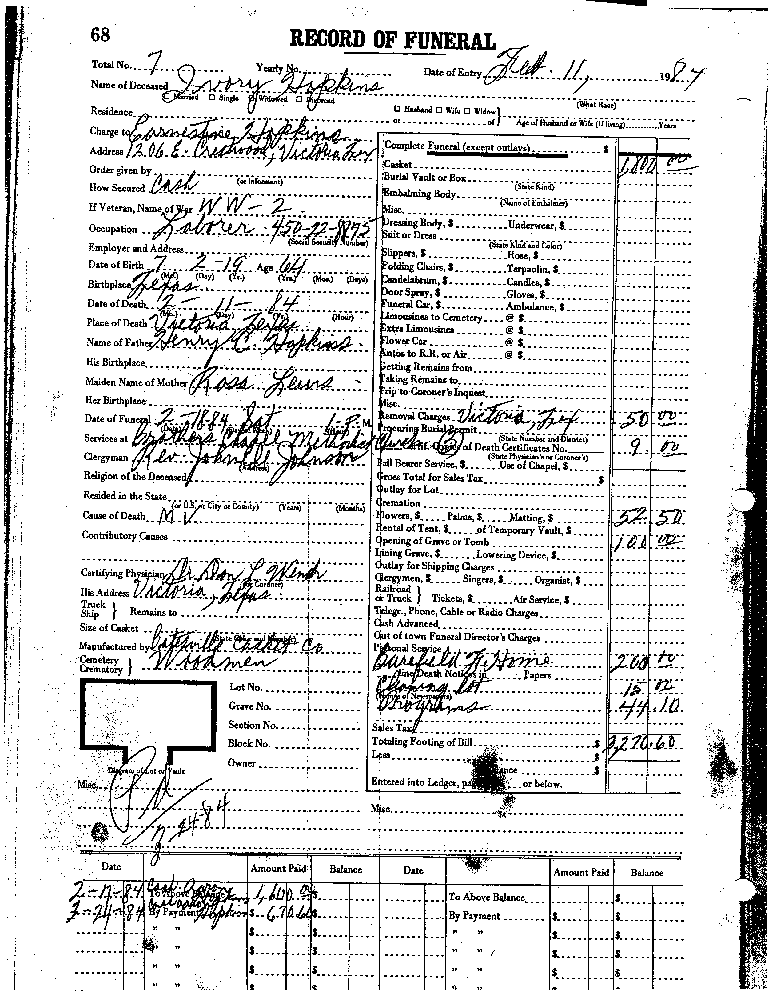 68
RECORD OF FUNERAL
Total No. 7 Yearly No. Date of Entry Feb. 11, 1984
Name of Deceased Ivory Hopkins
Married Single Widowed Divorced (What Race)
Residence Husband Wife Widow or of Age of Husband or Wife (if living) Years
Charge to Earnestine Hopkins
Address 1206 E. Crestwood, Victoria Tex
Order given by
(or Informant)
How Secured Cash
If Veteran, Name of War WW-2
Occupation Laborer
(Social Security Number)
Employer and Address
Date of Birth 7 2-19 Age 64
(Mo.) (Day) (Yr.) (Yrs.) (Mos.) (Days)
Birthplace Texas
Date of Death 2-11-84
(Hour)
Place of Death Victoria Texas
Name of Father Henry C. Hopkins
His Birthplace
Maiden Name of Mother Rosa Lewis
Her Birthplace
Date of Funeral Sat 1 P. M.
Services at Brothers Chapel
Clergyman Rev. Johnson
Religion of the Deceased
Resided in the State
(or U.S. or City or County) (Years) (Months)
Cause of Death
Contributory Causes
Certifying Physician Dr. Don L.
(or Coroner)
His Address Victoria, Texas
Truck Ship } Remains to
Size of Casket
Manufactured by Casket Co
Cemetery Crematory } Woodmen
Lot No.
Grave No.
Section No.
Block No.
Owner
Diagram of Lot or Vault
Misc.
Complete Funeral (except outlays) $
Casket 1,800 00
Burial Vault or Box
(State Kind)
Embalming Body
(Name of Embalmer)
Misc.
Dressing Body, $ Underwear, $
Suit or Dress
(State Kind and Color)
Slippers, $ Hose, $
Folding Chairs, $ Tarpaulin, $
Candelabrum, $ Candles, $
Door Spray, $ Gloves, $
Funeral Car, $ Ambulance, $
Limousines to Cemetery @ $
Extra Limousines @ $
Flower Car @ $
Autos to R.R. or Air @ $
Getting Remains from
Taking Remains to
Trip to Coroner's Inquest
Misc.
Removal Charges Victoria, Tex 50 00
Procuring Burial Permit
(State Number and District)
of Death Certificates No. 9 00
(State Physician's or Coroner's)
Pall Bearer Service, $ Use of Chapel, $
Gross Total for Sales Tax $
Outlay for Lot
Cremation
Flowers, $ Palms, $ Matting, $ 52.50
Rental of Tent, $ of Temporary Vault, $
Opening of Grave or Tomb 100 00
Lining Grave, $ Lowering Device, $
Outlay for Shipping Charges
Clergymen, $ Singers, $ Organist, $
Railroad or Truck } Tickets, $ Air Service, $
Telegr., Phone, Cable or Radio Charges
Cash Advanced
Out of town Funeral Director's Charges
Personal Service
Barefield F. Home 200
Death Notices in Papers
(Names of Newspapers)
Cleaning lot 15 00
Programs 44.10
Sales Tax
Totaling Footing of Bill $ 2,270.60
Less $
Balance $
Entered into Ledger, page or below.
Misc.
Date Amount Paid Balance Date Amount Paid Balance
2-17-84 1,600 00 To Above Balance $
3-24-84 By Payment Hopkins $ 670.60 $ By Payment $ $